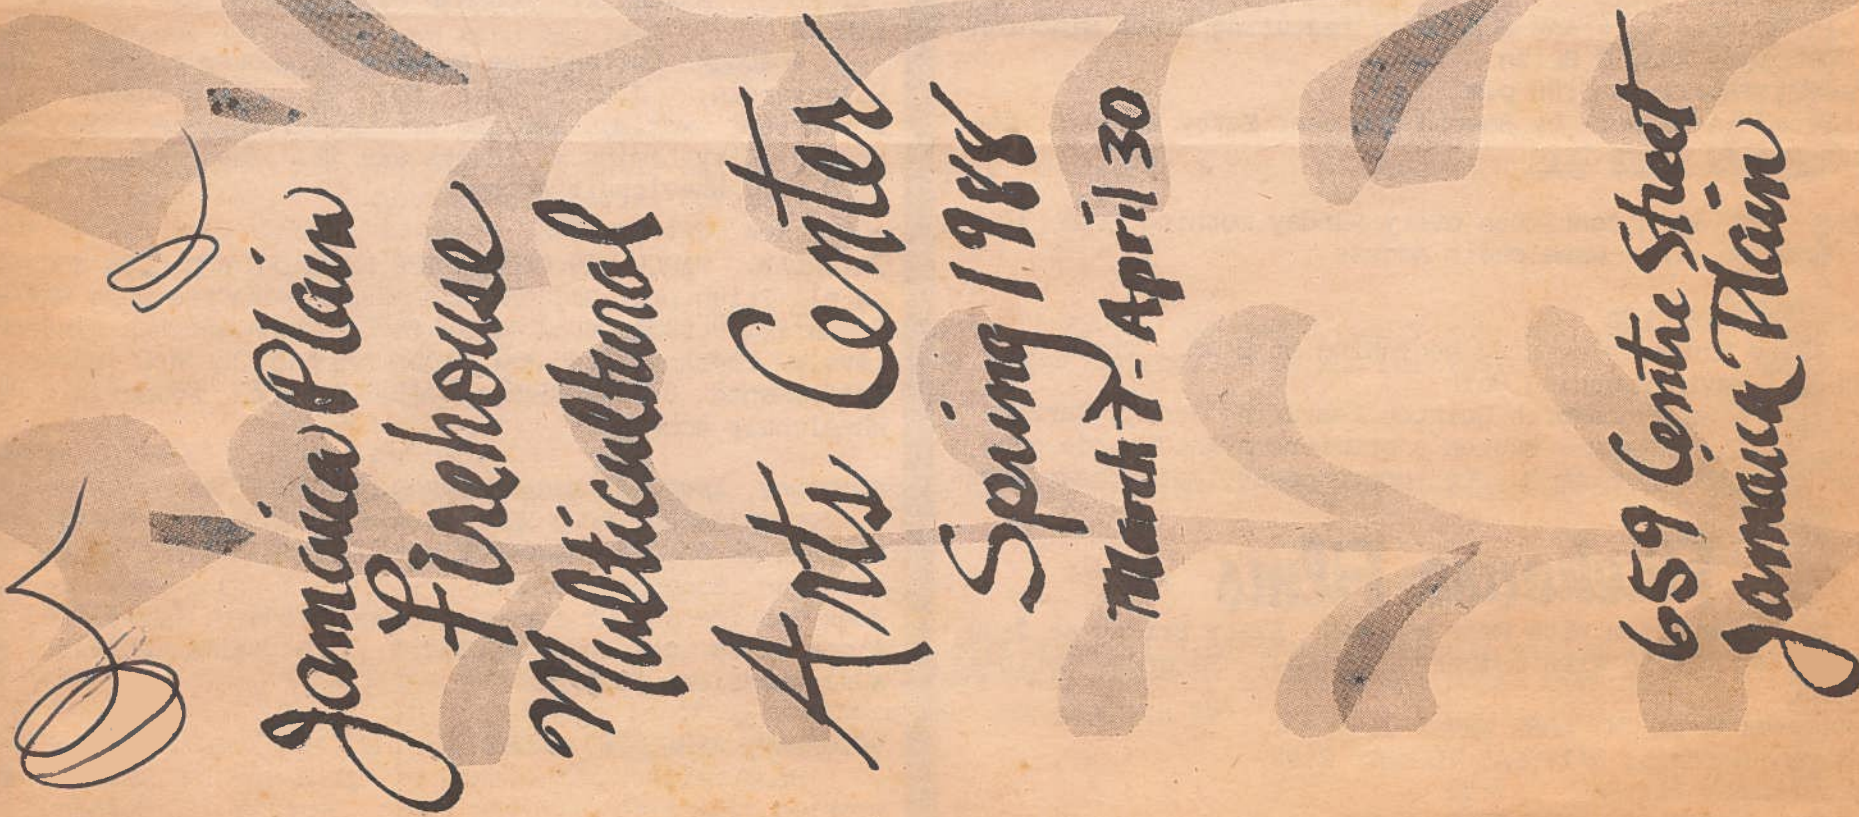 Jamaica Plain
Firehouse
Multicultural
Arts Center
Spring 1988
March 7 - April 30
659 Centre Street
Jamaica Plain